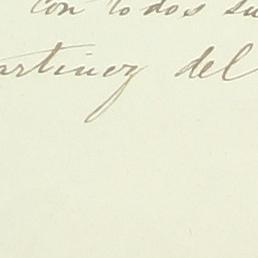 con todos su
artinez del